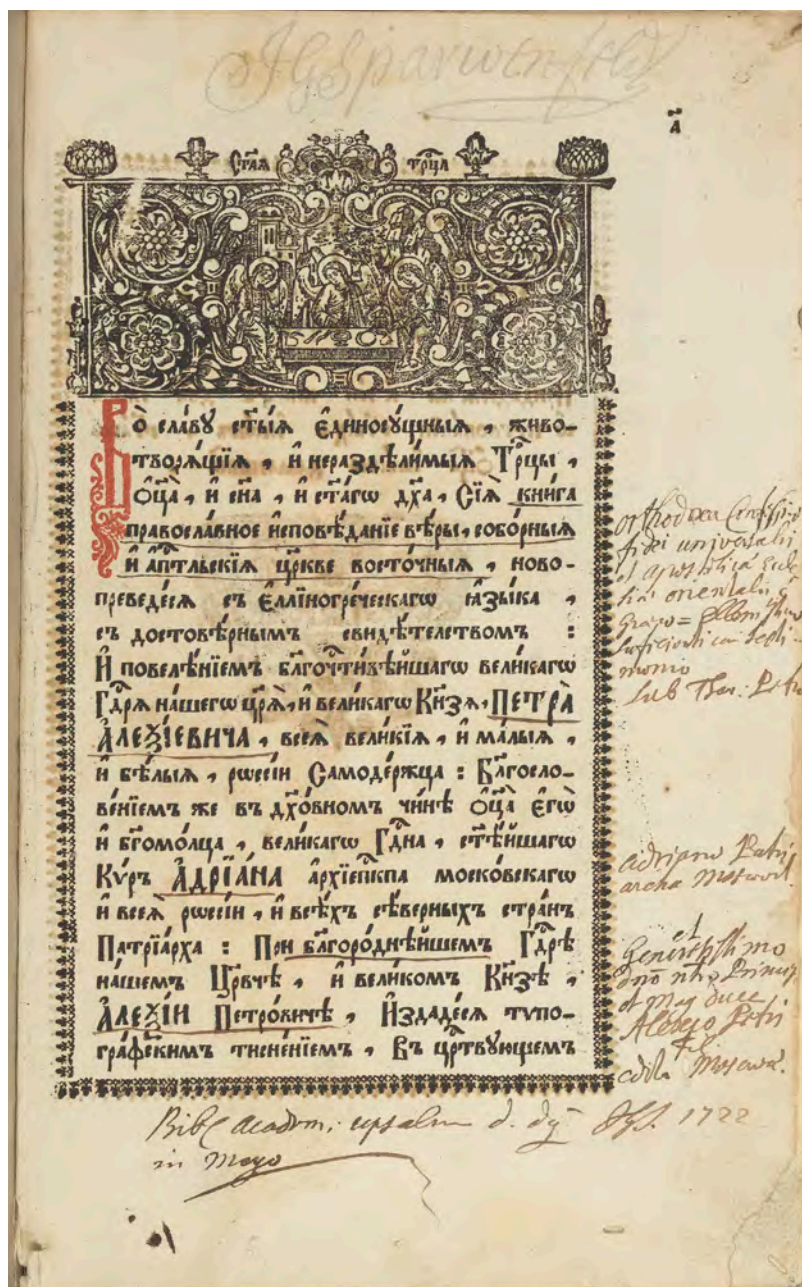 JGSparwenfeld
а҃
Ст҃ая трⷪ҇ца
Во̀ сла́вꙋ ст҃ы́ѧ є҆диносꙋ́щныѧ , живо-
творѧ́щїѧ , и҆ нераздѣли́мыѧ Трⷪ҇цы ,
Ѻ҆ц҃а̀ , и҆ сн҃а , и҆ ст҃а́гѡ дх҃а , Сїѧ̀ кни́га
правосла́вное и҆сповѣ́данїе вѣ́ры , собо́рныѧ
и҆ а҆пⷭ҇тльскїѧ цр҃кве восто́чныѧ , ново-
преведе́сѧ съ є҆́ллиногре́ческагѡ ꙗ҆зы́ка ,
съ достовѣ́рнымъ свидѣ́телством̾ :
И҆ повелѣ́нїемъ бл҃гочⷭ҇ти́вѣйшагѡ вели́кагѡ
Гдⷭ҇рѧ на́шегѡ цр҃ѧ̀ , и҆ вели́кагѡ Кн҃зѧ , ПЕТРА̀
А҆ЛЕѮІ́ЕВИЧА , всеѧ̀ вели́кїѧ , и҆ ма́лыѧ ,
и҆ бѣ́лыѧ , рѡссі́и Самоде́ржца : Бл҃госло-
ве́нїемъ же въ дх҃о́вномъ чи́нѣ Ѻ҆ц҃а̀ є҆гѡ̀
и҆ бг҃омо́лца , вели́кагѡ Гдⷭ҇на , ст҃ѣ́йшагѡ
Кѷ́ръ А҆ДРЇА́НА а҆рхїепⷭ҇кпа моско́вскагѡ
и҆ всеѧ̀ рѡссі́и , и҆ всѣ́хъ сѣ́верныхъ стра́нъ
Патрїа́рха : При бл҃горо́днѣйшемъ Гдⷭ҇рѣ
на́шемъ Цр҃вчѣ , и҆ вели́комъ Кн҃зѣ ,
А҆ЛЕѮІ́И Петро́вичѣ , И҆здаде́сѧ тѷпо-
гра́фскимъ тисне́нїемъ , Въ црⷭ҇твꙋющемъ
orthodoxa Confessio
fidei universalis
et apostolica Eccle
siæ orientalis
græco=
monio
sub Tsar: Petr
Adriano Patri
archa Moscov.
et
dno nro
et mag duce
Alexio Petri
Moscwa.
Bibl academ: upsalen d. d. JGS. 1722
in Mayo